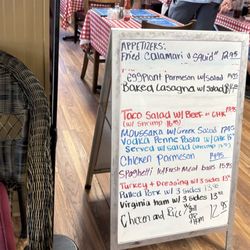 APPETIZERS:
Fried Calamari "Squid" 12.95
Eggplant Parmeson w/salad
Baked Lasagna w/salad
Taco Salad w/ Beef or CHK
(w/ Shrimp
Moussaka w/Greek Salad
Vodka Penne Pasta w/ CHK
Served w/salad (w/shrimp
Chicken Parmeson
Spaghetti w/Fresh Meat balls
Turkey + Dressing w/ 3 sides
Pulled Pork w/ 3 sides
Virginia ham w/ 3 sides
Chicken and Rice
12.95